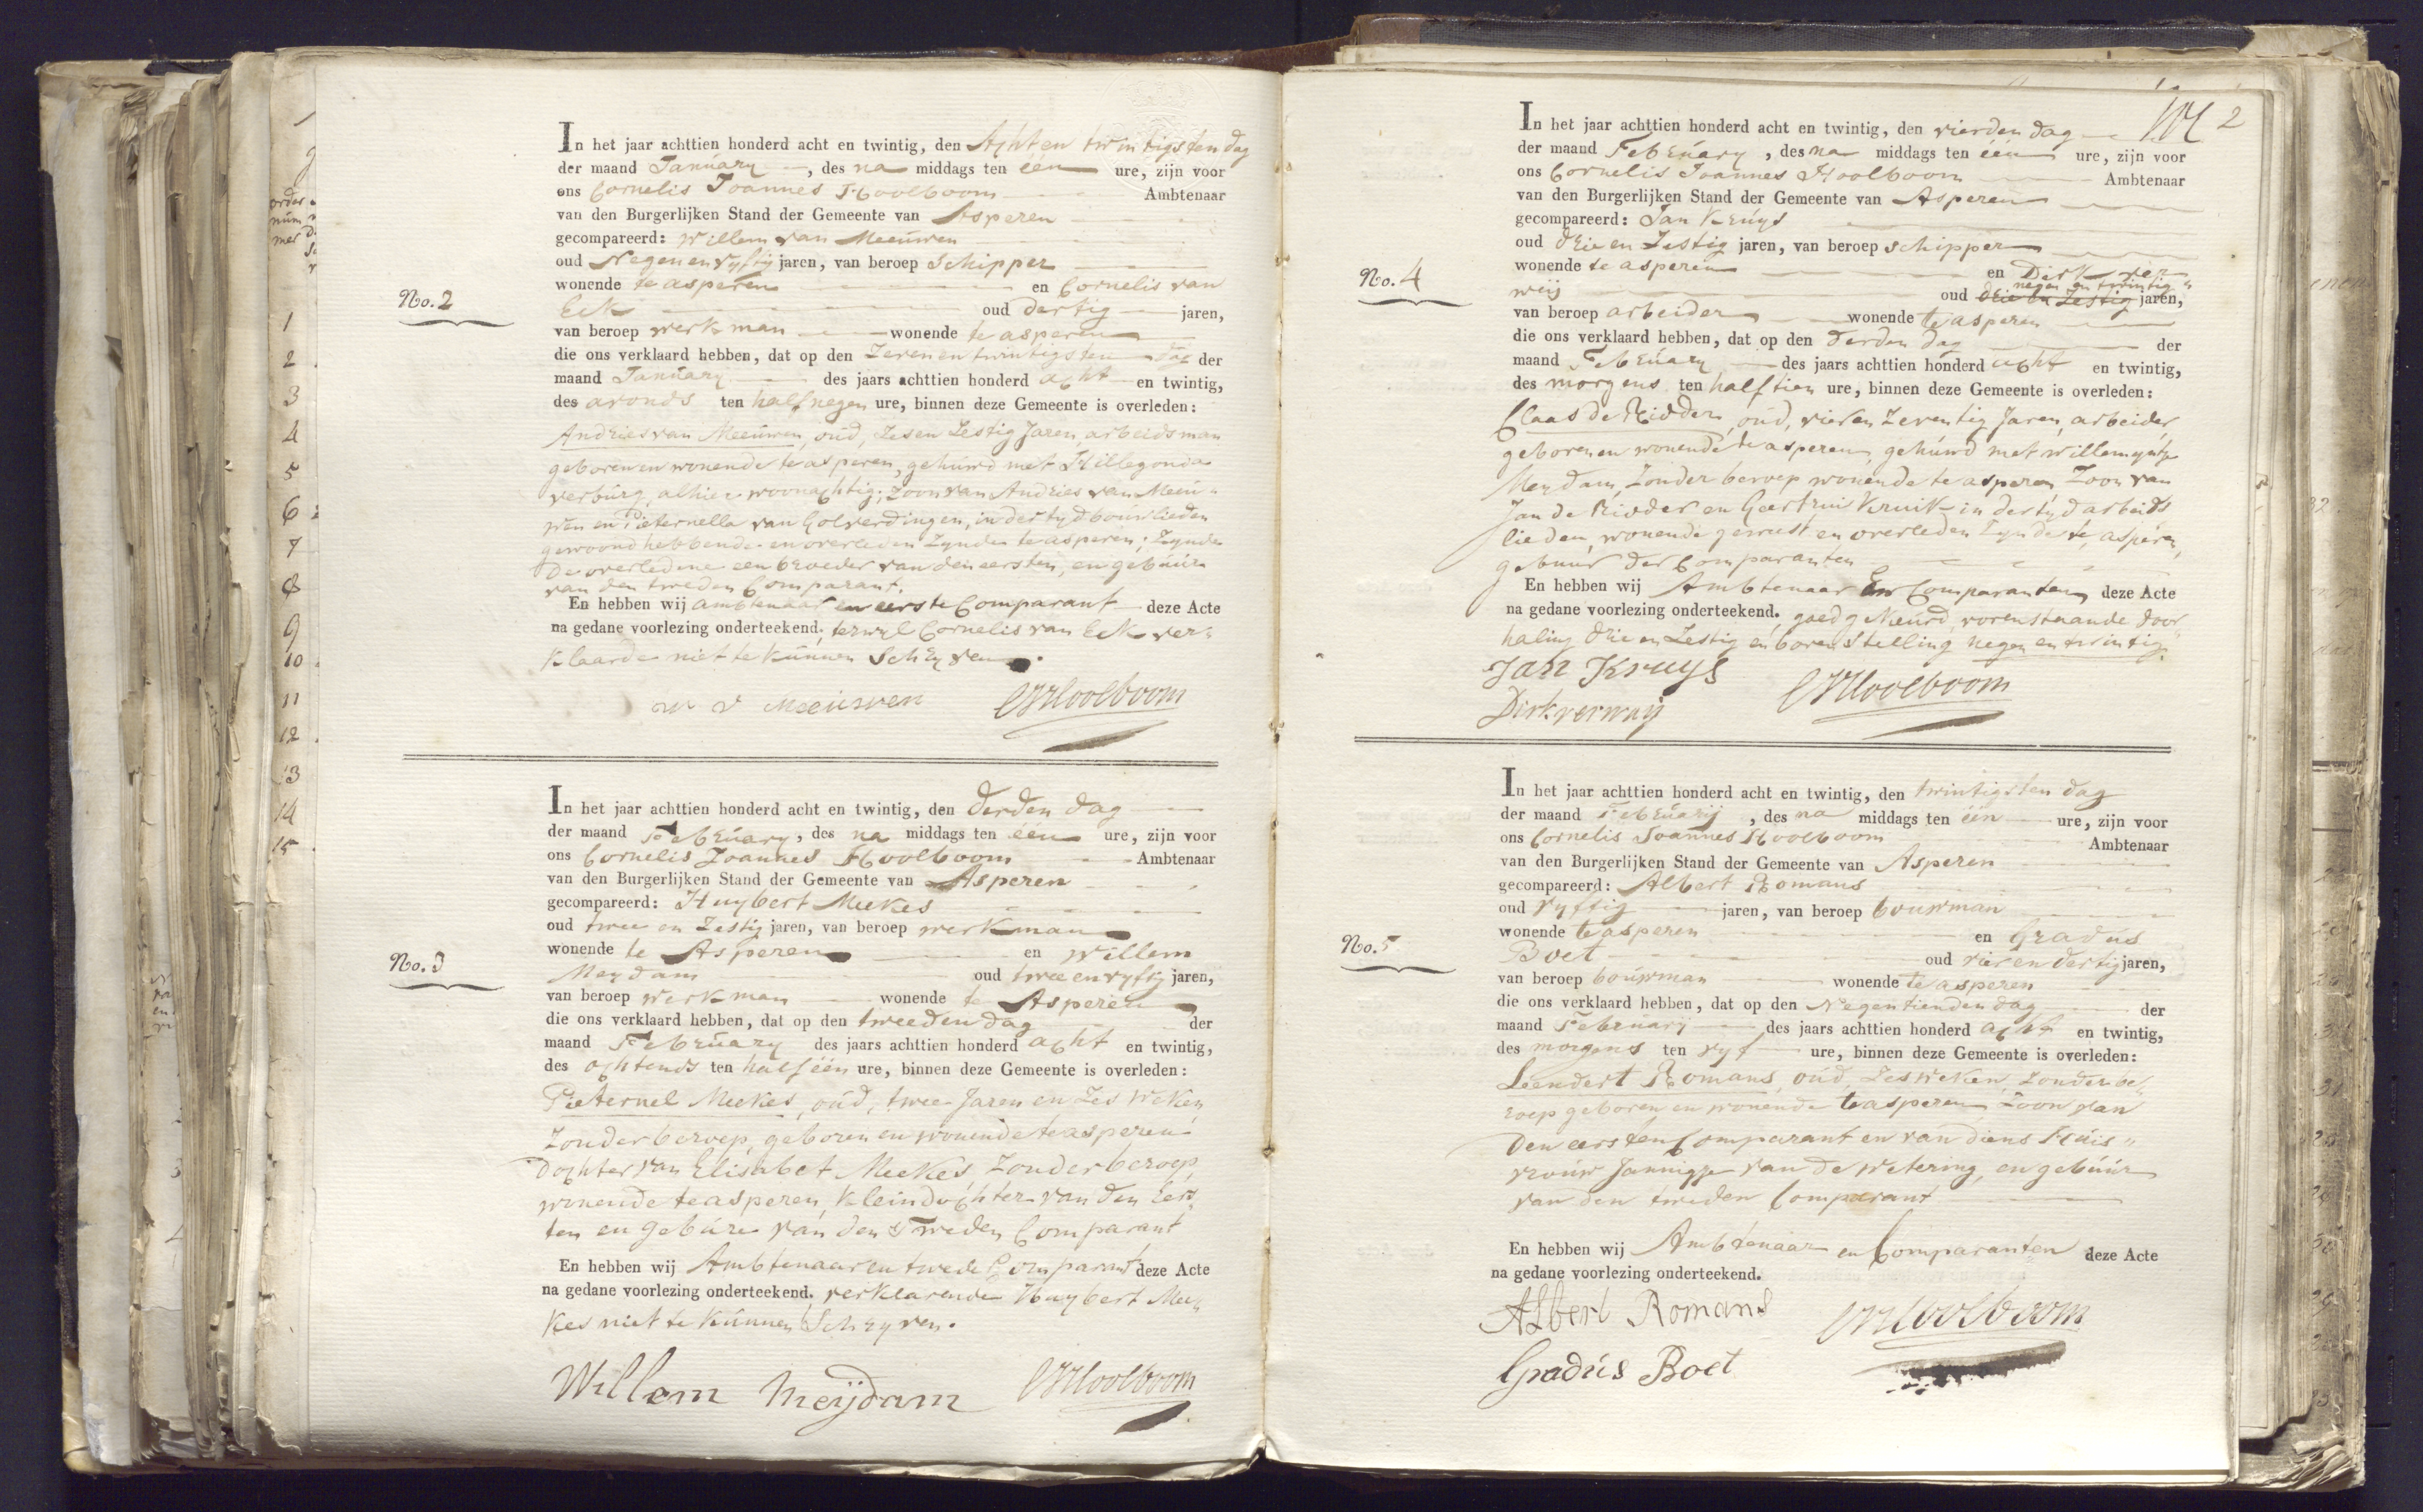 No. 2
In het jaar achttien honderd acht en twintig, den Achten twintigsten dag
der maand January, des na middags ten één ure, zijn voor
ons Cornelis Joannes Hoolboom Ambtenaar
van den Burgerlijken Stand der Gemeente van Asperen
gecompareerd: Willem van Meeuwen
oud Negenenvyftig jaren, van beroep Schipper
wonende te asperen en Cornelis van
Eck oud dertig jaren,
van beroep werkman wonende te asperen
die ons verklaard hebben, dat op den Zevenentwintigsten dag der
maand January des jaars achttien honderd acht en twintig,
des avonds ten half negen ure, binnen deze Gemeente is overleden:
Andries van Meeuwen, oud, Zesen Zestig Jaren, arbeidsman
geboren en wonende te asperen, gehuwd met Hillegonda
verburg, alhier woonachtig; zoon van Andries van Meeu„
wen en Pieternella van Golverdingen, in der tyd bouwlieden
gewoond hebbende en overleden Zynde te asperen; Zynde
de overledene een broeder van den eersten, en gebuur
van den tweden Comparant.
En hebben wij ambtenaar en eerste Comparant deze Acte
na gedane voorlezing onderteekend; terwyl Cornelis van Eck ver„
klaarde niet te kunnen Schryven.
W V Meeuwen CJHoolboom
No. 3
In het jaar achttien honderd acht en twintig, den derden dag
der maand February, des na middags ten één ure, zijn voor
ons Cornelis Joannes Hoolboom Ambtenaar
van den Burgerlijken Stand der Gemeente van Asperen
gecompareerd: Huybert Meekes
oud twee en Zestig jaren, van beroep werkman
wonende te Asperen en Willem
Meydam oud twee en vyftig jaren,
van beroep werkman wonende te Asperen
die ons verklaard hebben, dat op den tweeden dag der
maand February des jaars achttien honderd acht en twintig,
des ochtends ten half één ure, binnen deze Gemeente is overleden:
Pieternel Meekes, oud, twee Jaren en Zes Weken
Zonder beroep, geboren en wonende te asperen
dochter van Elisabet Meekes, Zonder beroep,
wonende te asperen, kleindochter van den Eers„
ten en gebure van den tweden Comparant
En hebben wij Ambtenaar en twede Comparant deze Acte
na gedane voorlezing onderteekend. verklarende Huybert Mee„
kes niet te kunnen Schryven.
Willem Meijdam CJHoolboom
2
No. 4
In het jaar achttien honderd acht en twintig, den vierden dag
der maand February, des na middags ten één ure, zijn voor
ons Cornelis Joannes Hoolboom Ambtenaar
van den Burgerlijken Stand der Gemeente van Asperen
gecompareerd: Jan Kruys
oud drie en Zestig jaren, van beroep schipper
wonende te asperen en Dirk ver
weij negen en twintig
oud drie en Zestig jaren,
van beroep arbeider wonende te asperen
die ons verklaard hebben, dat op den derden dag der
maand February des jaars achttien honderd acht en twintig,
des morgens ten half tien ure, binnen deze Gemeente is overleden:
Claas de Ridder, oud, vier en Zeventig Jaren, arbeider
geboren en wonende te asperen, gehuwd met willemyntje
Meydam, Zonder beroep wonende te asperen Zoon van
Jan de Ridder en Geertrui Kruik in der tyd arbeids
lieden, wonende geweest en overleden Zynde te asperen,
gebuur der Comparanten
En hebben wij Ambtenaar En Comparanten deze Acte
na gedane voorlezing onderteekend. goedgekeurd, vorenstaande door
haling drie en Zestig en boven Stelling negen en twintig.
Jan Kruys CJHoolboom
Dirk verweij
No. 5
In het jaar achttien honderd acht en twintig, den twintigsten dag
der maand Februarij, des na middags ten één ure, zijn voor
ons Cornelis Joannes Hoolboom Ambtenaar
van den Burgerlijken Stand der Gemeente van Asperen
gecompareerd: Albert Romans
oud vyftig jaren, van beroep bouwman
wonende te asperen en Gradus
Boet oud vier en dertig jaren,
van beroep bouwman wonende te asperen
die ons verklaard hebben, dat op den Negentienden dag der
maand February des jaars achttien honderd acht en twintig,
des morgens ten vyf ure, binnen deze Gemeente is overleden:
Leendert Romans, oud, Zes weken, Zonder be„
roep geboren en wonende te asperen Zoon van
den eersten Comparant en van diens Huis„
vrouw Jannigje van de Wetering, en gebuur
van den tweden Comparant
En hebben wij Ambtenaar en Comparanten deze Acte
na gedane voorlezing onderteekend.
Albert Romans CJHoolboom
Gradus Boet
order
num
mer
1
2
3
4
5
6
7
8
9
10
11
12
13
14
15